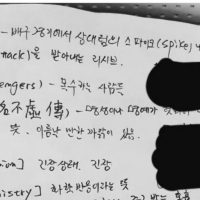 - 배구경기에서 상대팀의 스파이크(spike, 
mack)을 받아내는 리시브.
engers) - 복수하는 사람들
名不虛傳) - 명성이나 명예가
뜻. 이름날 만한 까닭이 있음.
ion] 긴장상태, 긴장
istry] 화학반응이라는 뜻